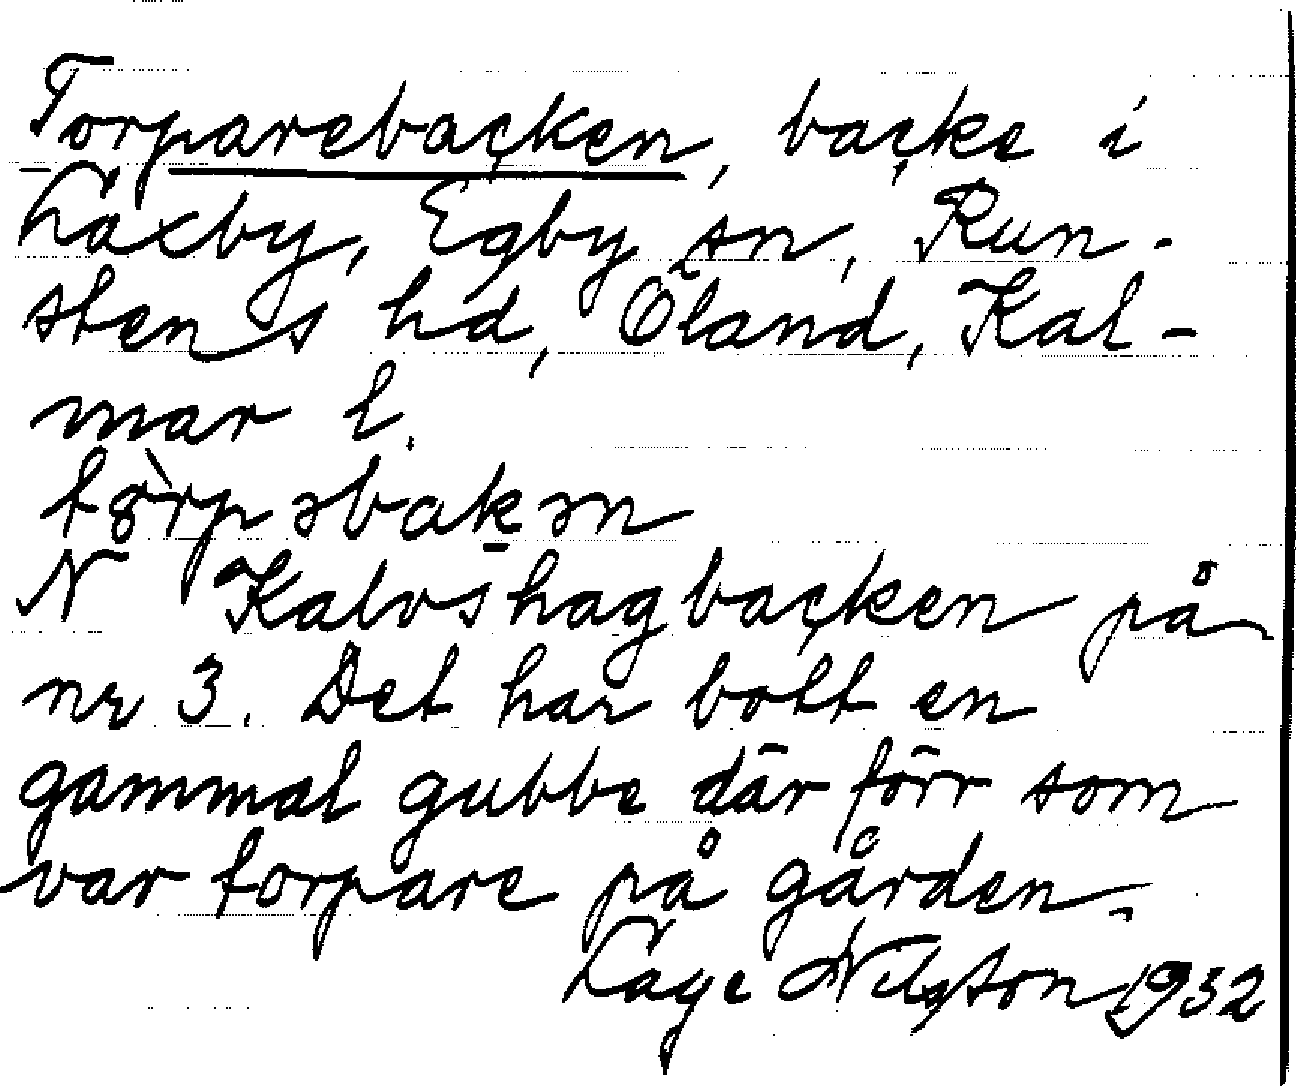 Torparebacken, backe i
Laxby, Egby sn, Run-
stens hd, Öland, Kal-
mar l.
t8̀rpəbak̠ən
N Kalvshagbacken på
nr 3. Det har bott en
gammal gubbe där förr som
var torpare på gården.
Lage Nilsson 1932